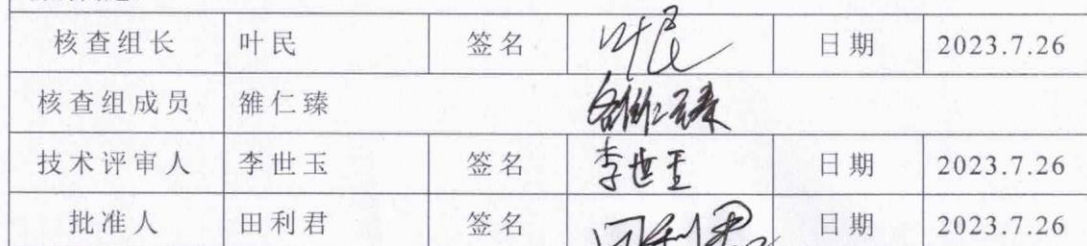 核查组长 叶民 签名 叶民 日期 2023.7.26
核查组成员 雒仁臻 雒仁臻
技术评审人 李世玉 签名 李世玉 日期 2023.7.26
批准人 田利君 签名 田利君 日期 2023.7.26